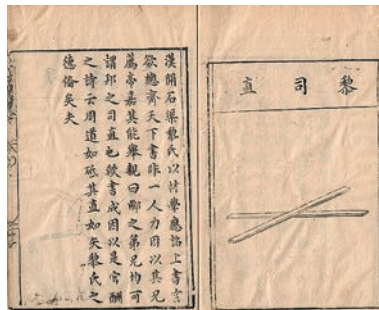 黎司直
漢開石渠黎氏以材學應詔上書言
欲總齊天下書非一人力因以其兄
薦帝嘉其能舉親曰卿之弟兄均可
謂邦之司直也歟書成因以是官酬
之詩云周道如砥其直如矢黎氏之
德脩矣夫